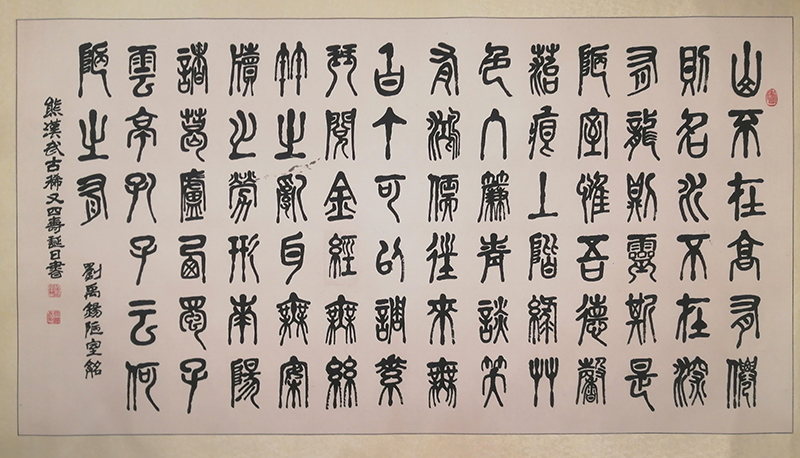 山不在高有僊
則名水不在深
有龍則靈斯是
陋室惟吾德馨
苔痕上階綠艸
色入簾青談笑
有鴻儒往來無
白丁可以調素
琴閱金經無絲
竹之亂耳無案
牘之勞形南陽
諸葛廬西蜀子
雲亭孔子云何
陋之有
劉禹錫陋室銘
熊漢武古稀又四壽誕日書